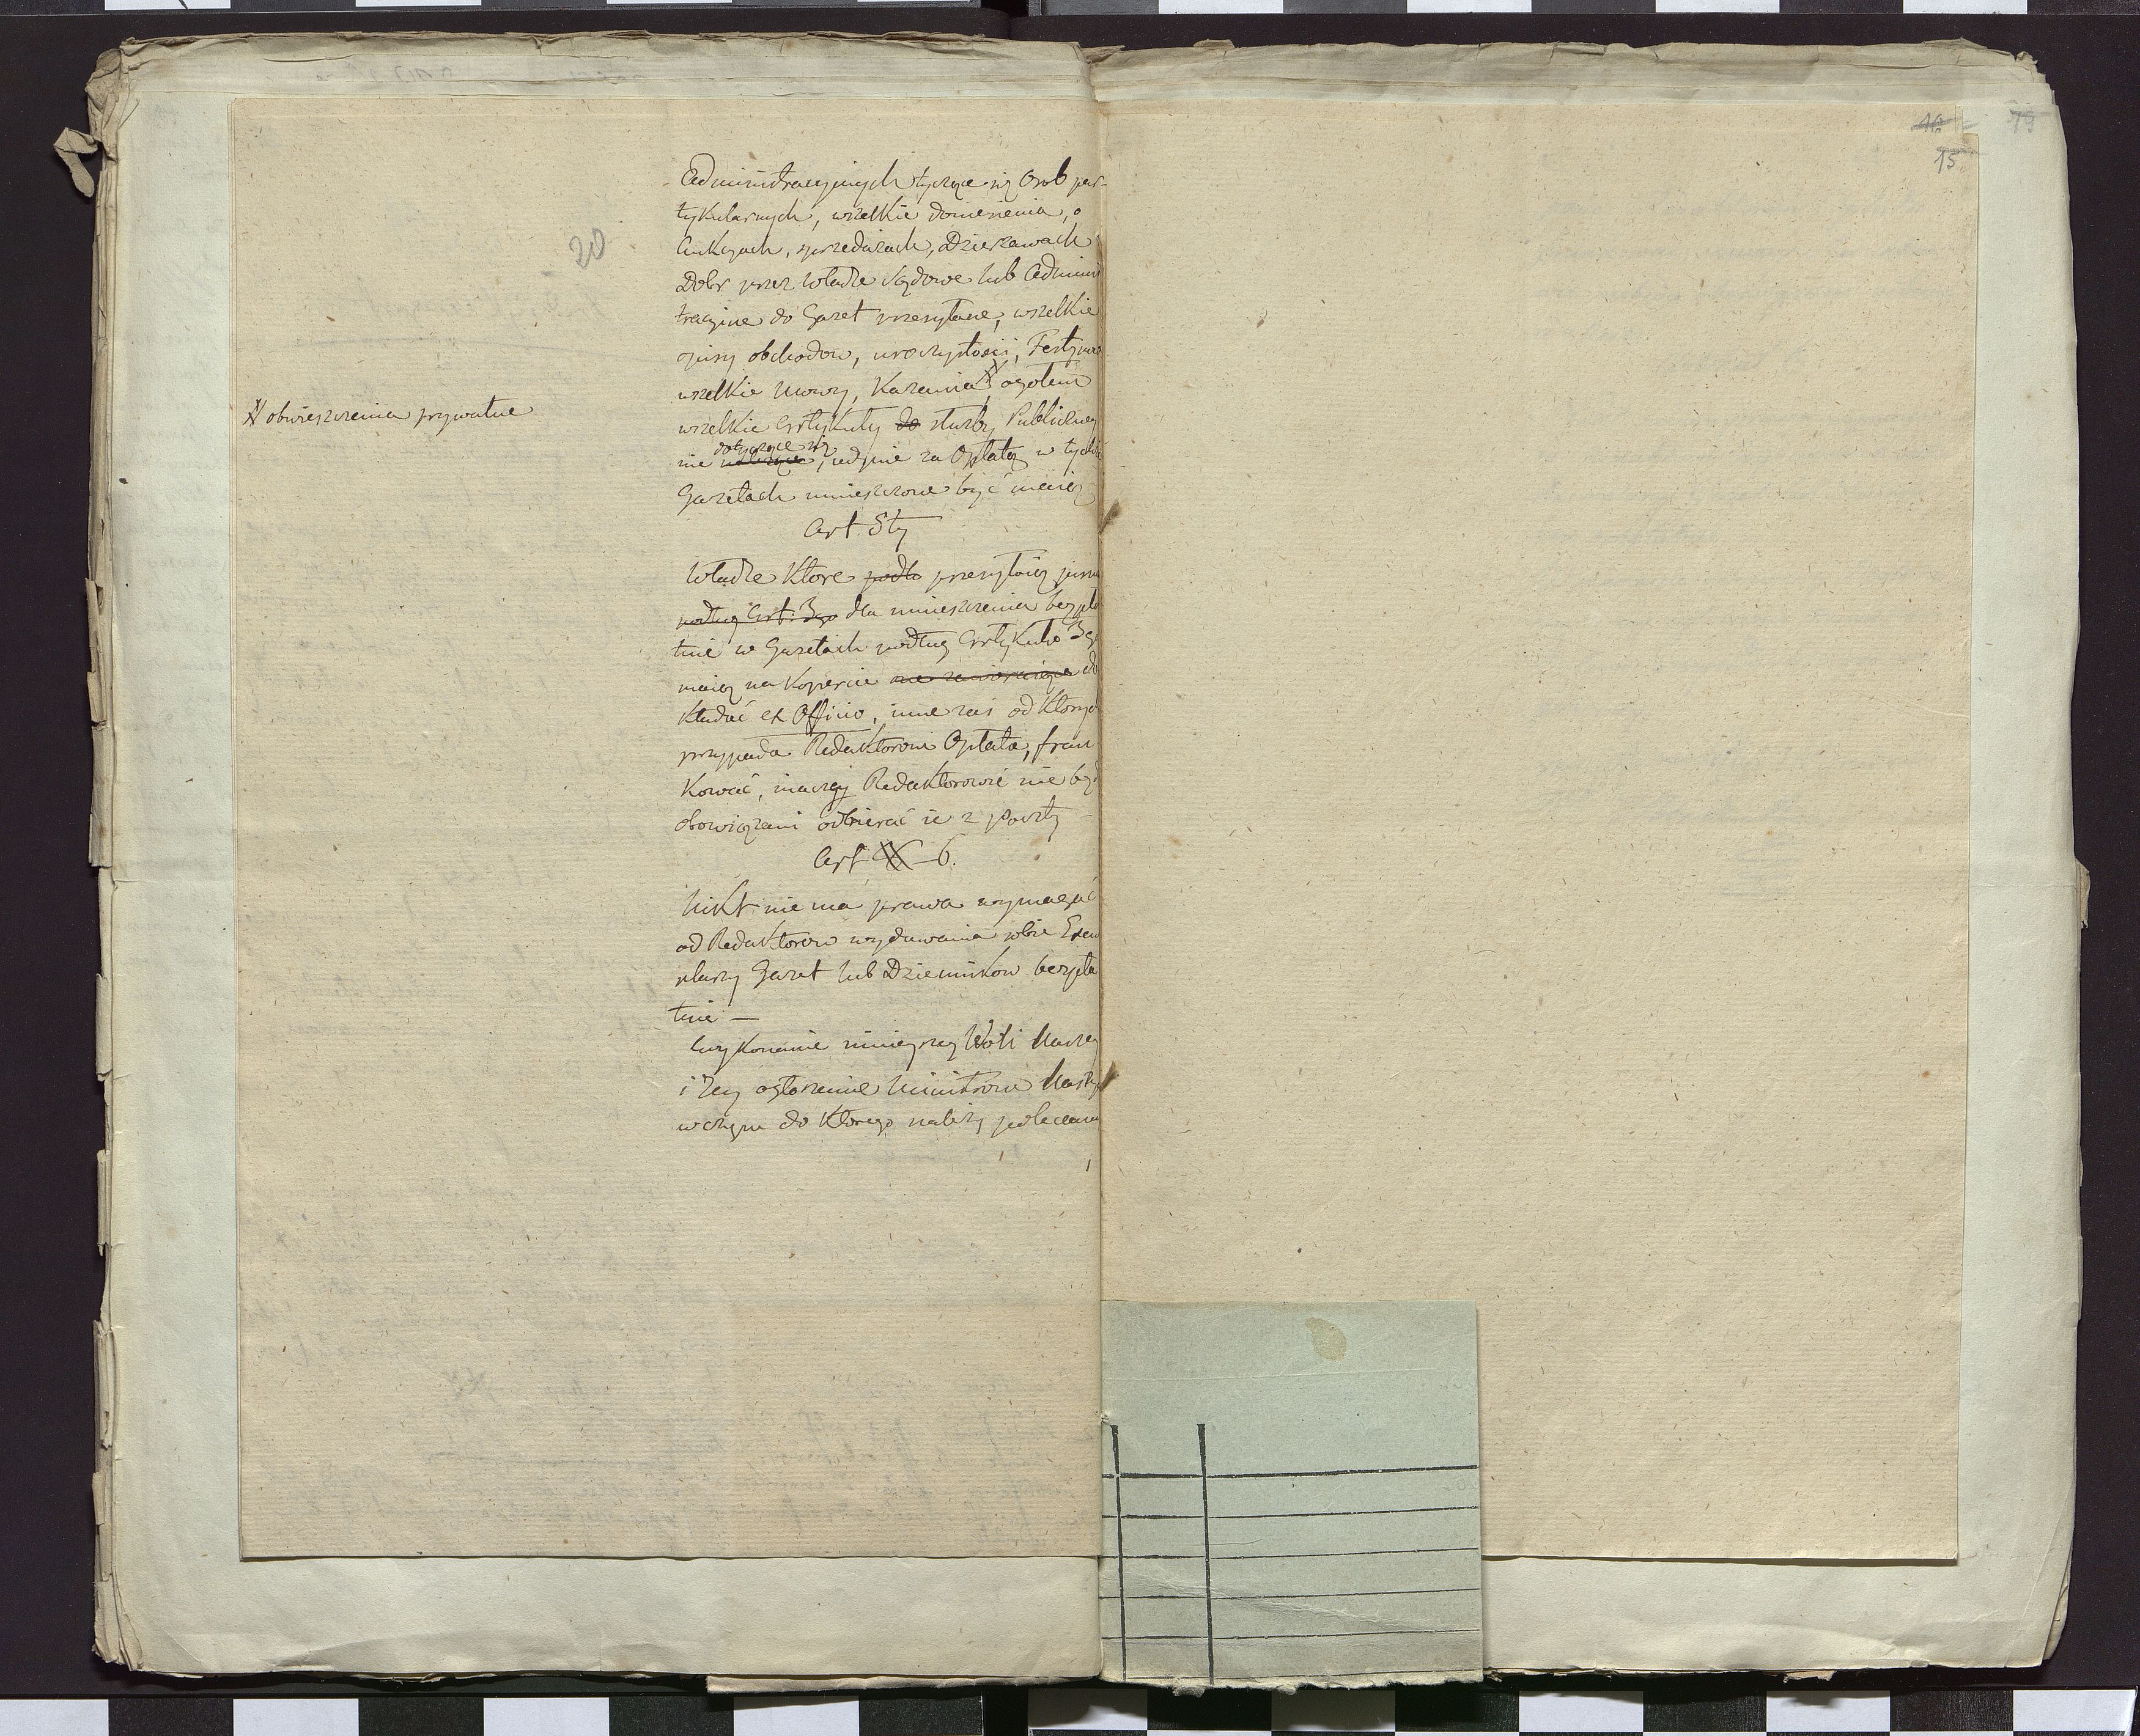 16 79
15
20
Administracyinych tyczące się Osob par-
tykularnych, wszelkie doniesienia, o
Aukcyach, sprzedażach, Dzierżawach
Dobr przez Władze Sądowe lub Adminis
tracyine do Gazet przesyłane, wszelkie
opisy obchodow, uroczystości, Festynow
wszelkie Mowy, Kazania X ogołem
X obwieszczenia prywatne
wszelkie Artykuły do służby Publiczney
dotyczące się
nie należące, jedynie za Opłatą w tychże
Gazetach umieszczone być maią
Art 5ty
Władze Ktore podło przesyłaią pisma
według Art: 3go dla umieszczenia bezpła
tnie w Gazetach według Artykułu 3go
maią na Kopercie nie zawieraiące do
kładać ex Officio, inne zaś od Ktorych
przypada Redaktorowi Opłata, fran
kować, inaczey Redaktorowie nie będą
obowiązani odbierać ie z poczty
Art 6.
Nikt nie ma prawa wymagać
od Redaktorow wydawania sobie Exem
plarzy Gazet lub Dzienników bezpła
tnie —
Wykonanie ninieyszey Woli Naszey
i Jey ogłoszenie Ministrowi Nasze
w czym do Ktorego należy polecamy